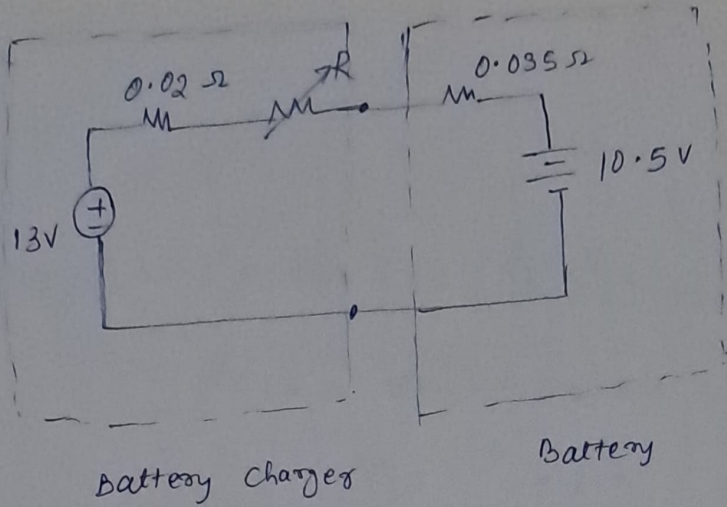 0.02 Ω
R
0.035 Ω
13V
+
-
10.5 V
Battery Charger
Battery